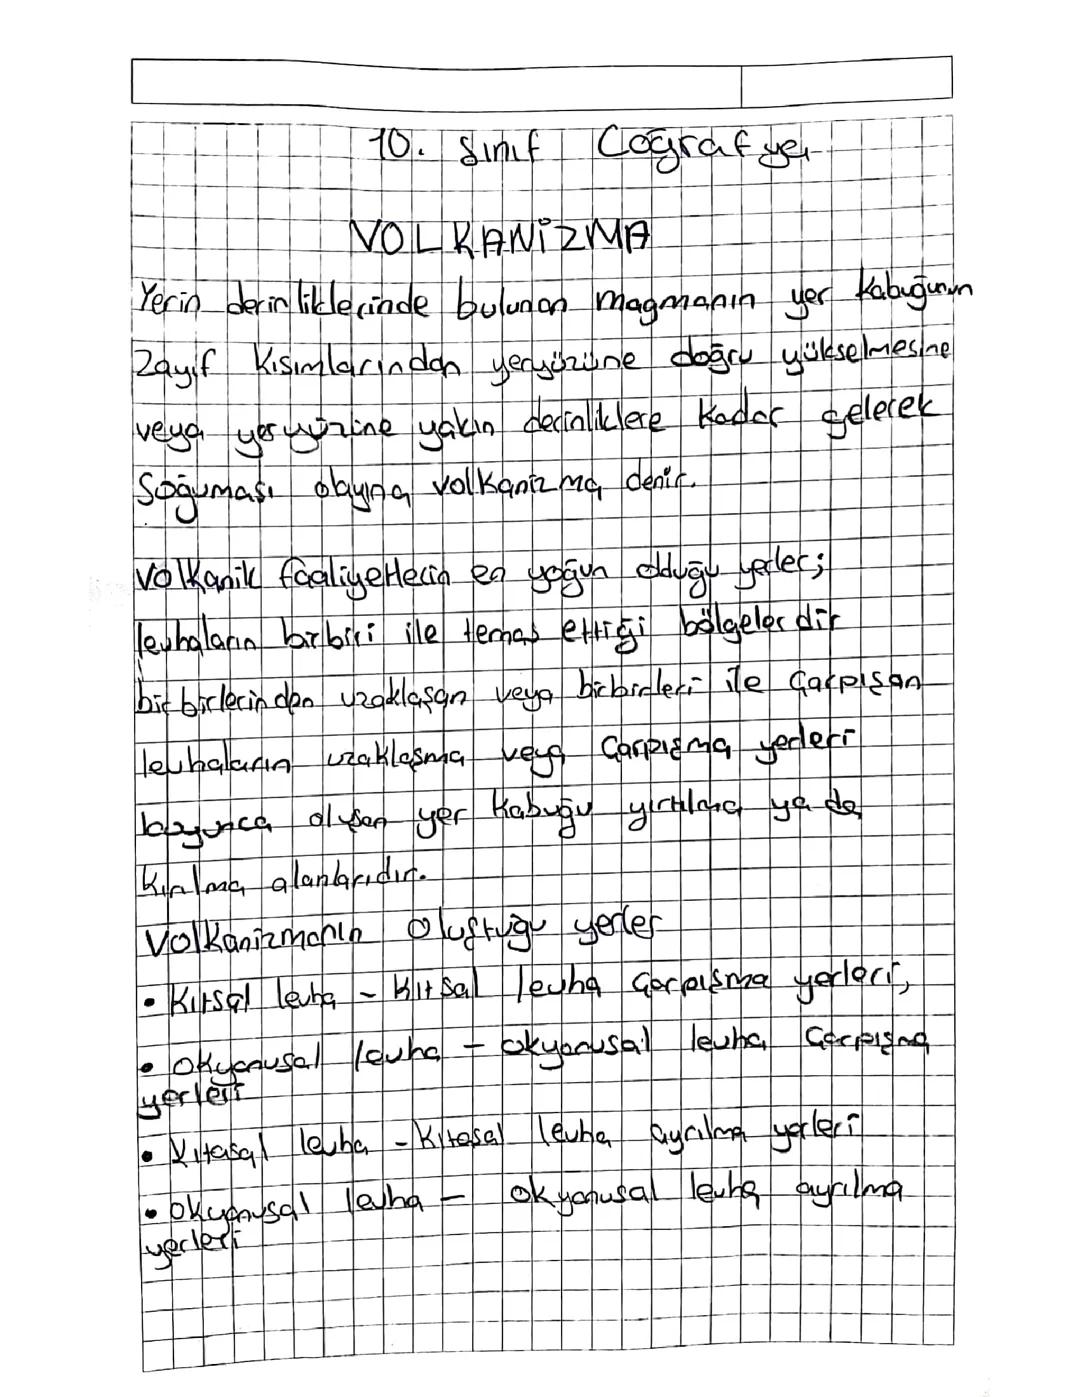 10. Sınıf Coğrafya
VOLKANİZMA
Yerin derinliklerinde bulunan magmanın yer kabuğunun
Zayıf kısımlarından yeryüzüne doğru yükselmesine
veya yeryüzüne yakın derinliklere kadar gelerek
Soğuması olayına volkanizma denir.
Volkanik faaliyetlerin en yoğun olduğu yerler;
levhaların birbiri ile temas ettiği bölgelerdir
birbirlerinden uzaklaşan veya birbirleri ile çarpışan
levhaların uzaklaşma veya Çarpışma yerleri
boyunca oluşan yer kabuğu yırtılma ya da
Kırılma alanlarıdır.
Volkanizmanın Oluştuğu yerler
• Kıtsal levha - Kıtsal levha Çarpışma yerleri,
• Okyanusal levha - okyanusal levha Çarpışma
yerleri
• Kıtasal levha - Kıtasal levha ayrılma yerleri
• Okyanusal levha - okyanusal levha ayrılma
yerleri